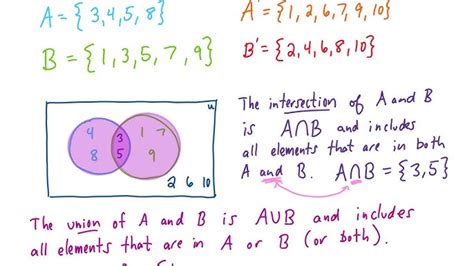 A = {3,4,5,8}
A' = {1,2,6,7,9,10}
B = {1,3,5,7,9}
B' = {2,4,6,8,10}
U
4 3 1 7
8 5 9
2 6 10
The intersection of A and B
is A∩B and includes
all elements that are in both
A and B. A∩B = {3,5}
The union of A and B is A∪B and includes
all elements that are in A or B (or both).